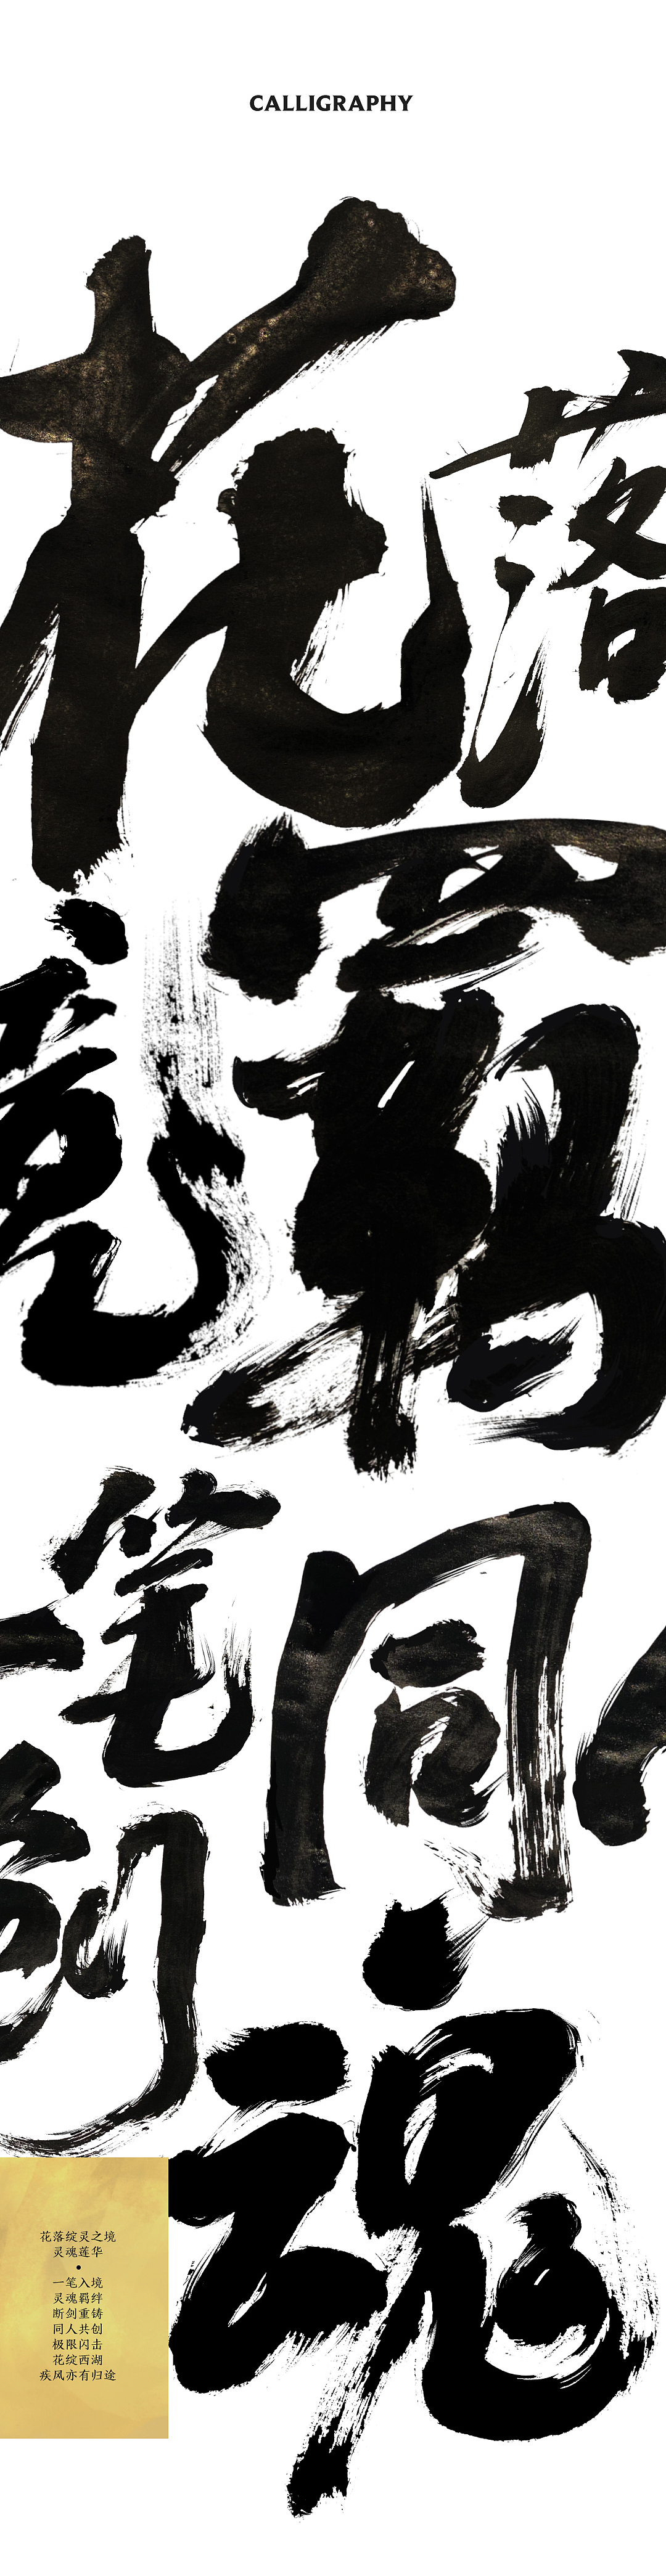 CALLIGRAPHY
花落
境羁
一笔同人
创魂
花落绽灵之境
灵魂莲华
•
一笔入境
灵魂羁绊
断剑重铸
同人共创
极限闪击
花绽西湖
疾风亦有归途